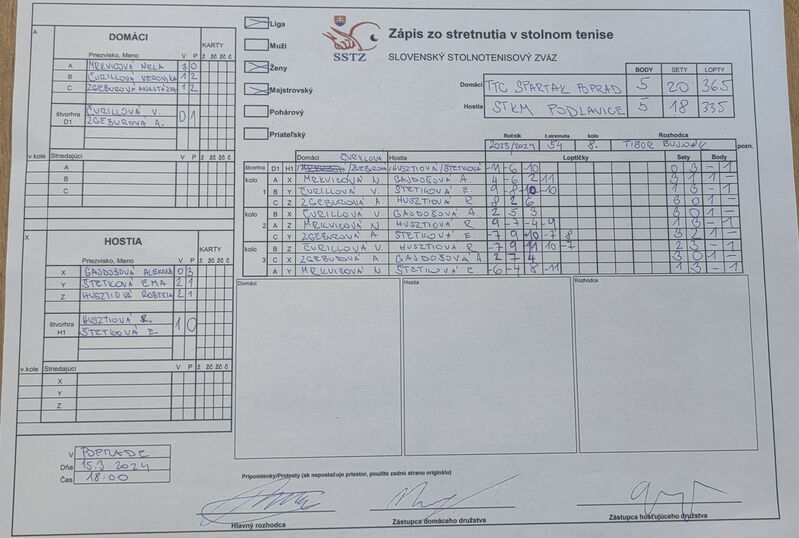 Zápis zo stretnutia v stolnom tenise
SLOVENSKÝ STOLNOTENISOVÝ ZVÄZ
SSTZ
Liga
Muži
Ženy
Majstrovský
Pohárový
Priateľský
BODY SETY LOPTY
Domáci TTC SPARTAK POPRAD 5 20 365
Hostia STKM PODLAVICE 5 18 335
Ročník č.stretnutia kolo Rozhodca
2023/2024 54 8. TIBOR pozn.
A
DOMÁCI
KARTY
Priezvisko, Meno V P ž žč žč č
A MRKVICOVÁ NELA 3 0
B ČURILLOVÁ VERONIKA 1 2
C ZGEBUROVÁ ANASTÁZIA 1 2
štvorhra D1
ČURILLOVÁ V. 0 1
ZGEBUROVÁ A.
v kole Striedajúci V P ž žč žč č
A
B
C
X
HOSTIA
KARTY
Priezvisko, Meno V P ž žč žč č
X GAJDOŠOVÁ 0 3
Y ŠTETKOVÁ EMA 2 1
Z HUSZTIOVÁ 2 1
štvorhra H1
HUSZTIOVÁ R. 1 0
ŠTETKOVÁ E.
v kole Striedajúci V P ž žč žč č
X
Y
Z
Domáci Hostia Loptičky Sety Body
štvorhra D1 H1 ČURILLOVÁ /ZGEBUROVÁ /HUSZTIOVÁ /ŠTETKOVÁ -11 -6 -10 0 3 - 1
kolo A X MRKVICOVÁ N. GAJDOŠOVÁ A. 4 -6 2 11 3 1 1 -
1 B Y ČURILLOVÁ V. ŠTETKOVÁ E. 1 3 - 1
C Z ZGEBUROVÁ A. HUSZTIOVÁ R 8 2 6 3 0 1 -
kolo B X ČURILLOVÁ V GAJDOŠOVÁ A. 2 5 3 3 0 1 -
2 A Z MRKVICOVÁ N HUSZTIOVÁ R 9 -7 -4 -9 1 3 - 1
C Y ZGEBUROVÁ A. ŠTETKOVÁ E. 3 2 1 -
kolo B Z ČURILLOVÁ V. HUSZTIOVÁ R -7 9 11 10 -7 2 3 - 1
3 C X ZGEBUROVÁ A. GAJDOŠOVÁ A 2 7 4 3 0 1 -
A Y MRKVICOVÁ N. ŠTETKOVÁ E -6 -4 8 -11 1 3 - 1
Domáci Hostia Rozhodca
V POPRADE
Dňa 15.3 2024
Čas 18:00
Pripomienky/Protesty (ak nepostačuje priestor, použite zadnú stranu originálu)
Hlavný rozhodca
Zástupca domáceho družstva
Zástupca hosťujúceho družstva